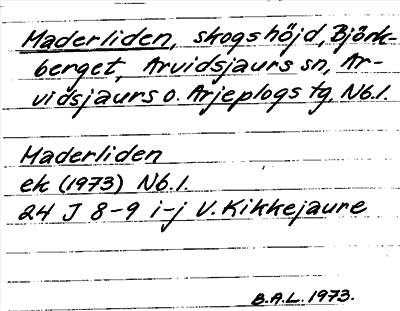 Maderliden, skogshöjd, Björk-
berget, Arvidsjaurs sn, Ar-
vidsjaurs o. Arjeplogs tg, Nb.l.
Maderliden
ek (1973) Nb.l.
24 J 8-9 i-j V. Kikkejaure
B.A.L. 1973.